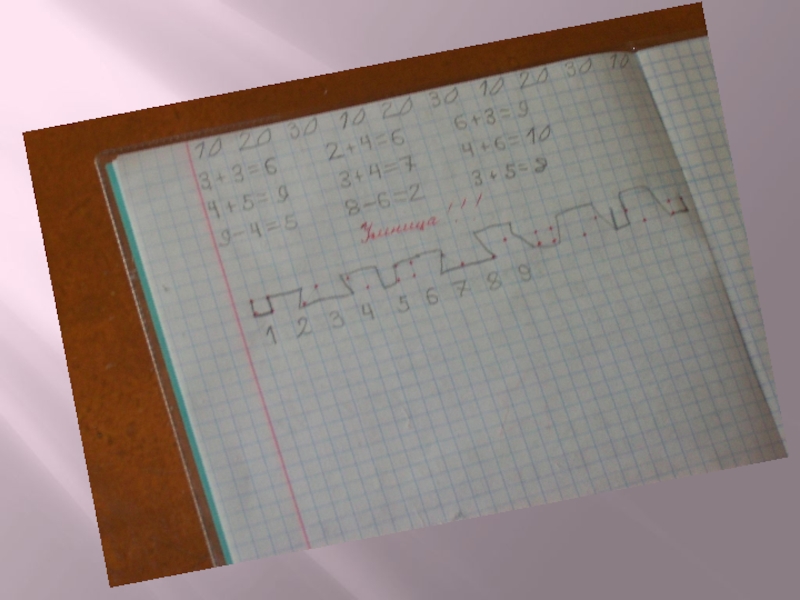 10 20 30 10 20 30 10 20 30 10
3+3=6 2+4=6 6+3=9
4+5=9 3+4=7 4+6=10
9-4=5 8-6=2 3+5=9
Умница!!!
1 2 3 4 5 6 7 8 9